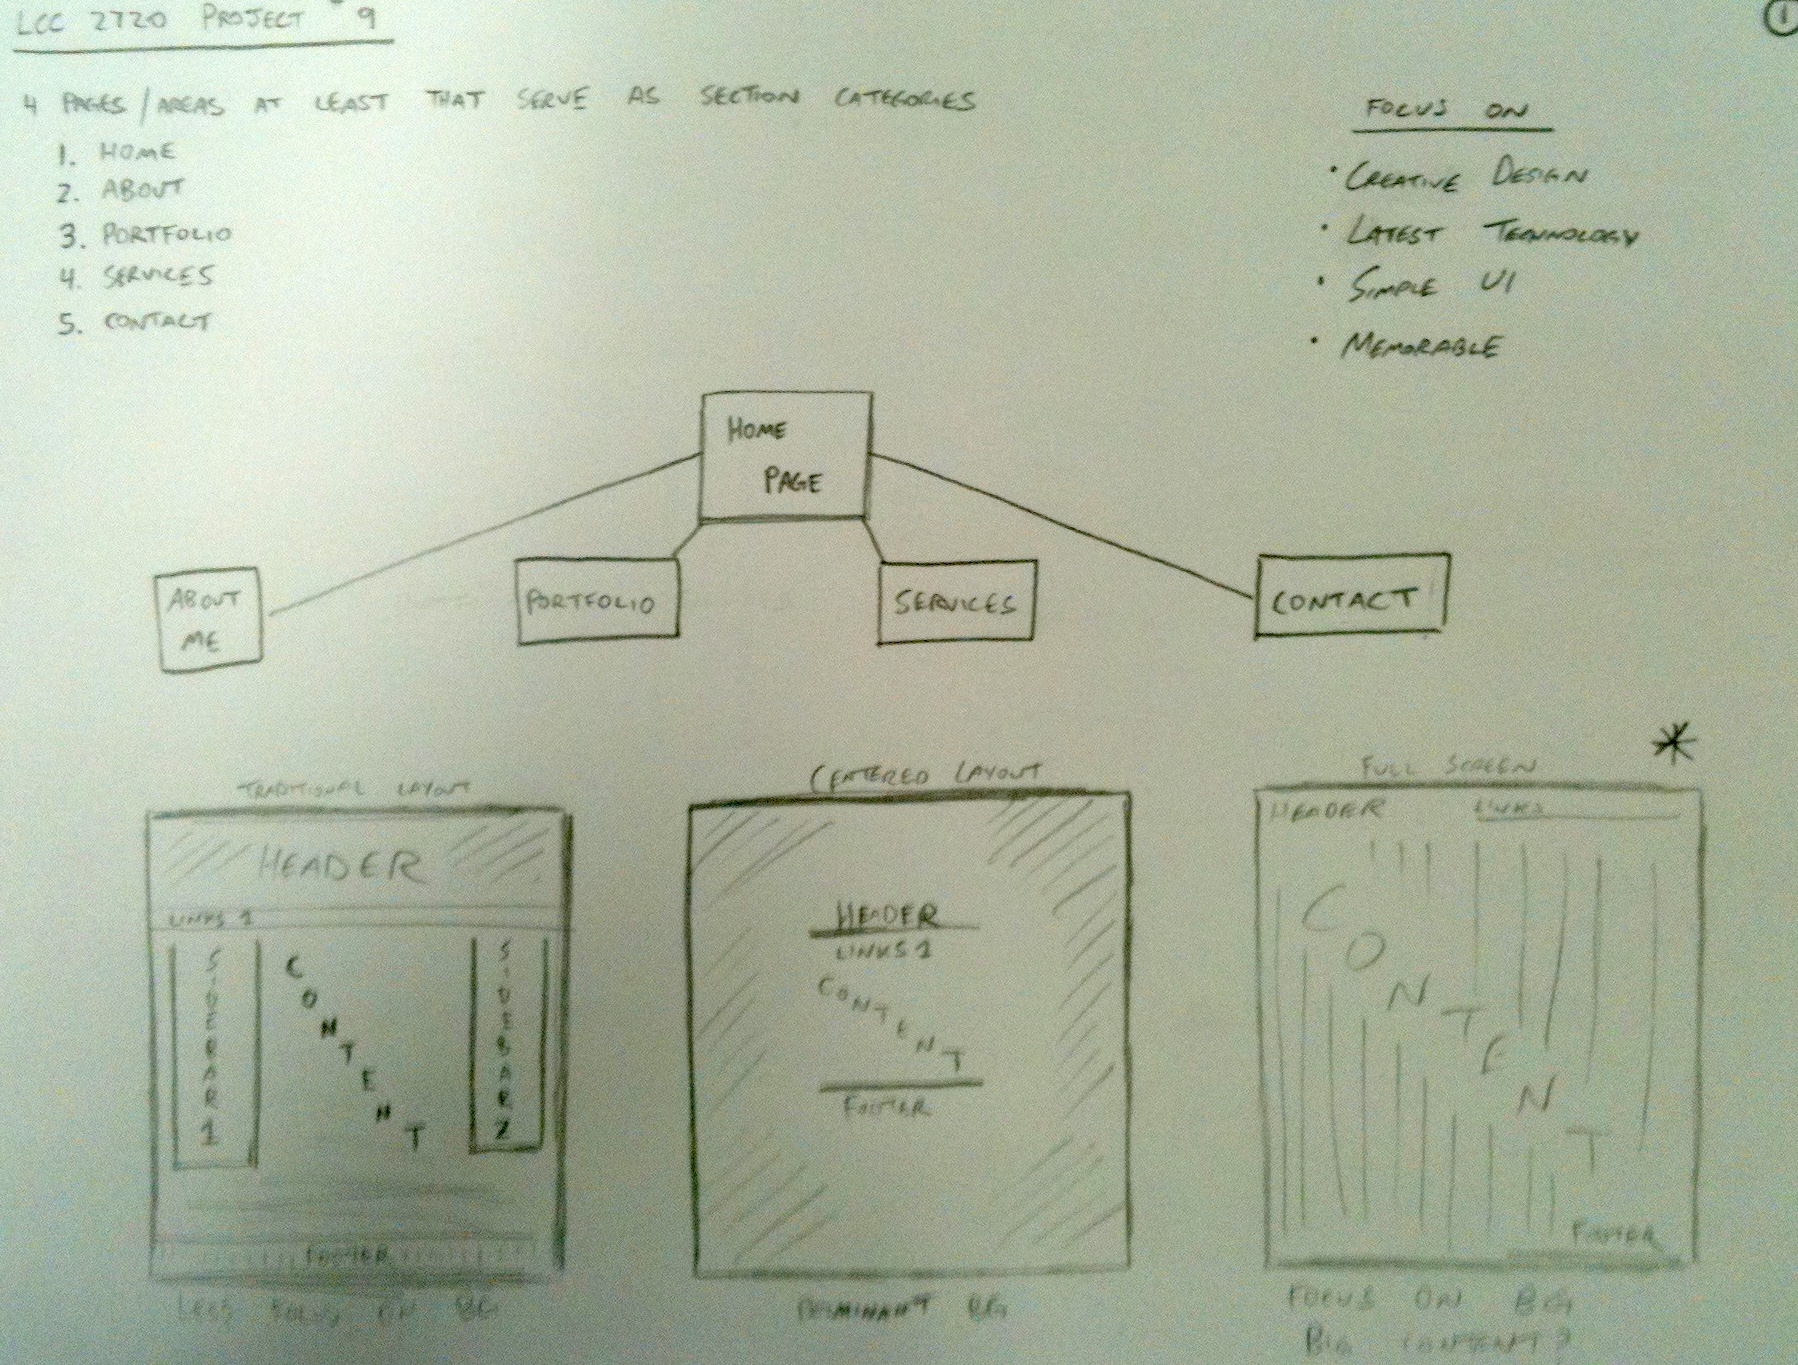 LCC 2720 PROJECT # 9
1
4 PAGES / AREAS AT LEAST THAT SERVE AS SECTION CATEGORIES
1. HOME
2. ABOUT
3. PORTFOLIO
4. SERVICES
5. CONTACT
FOCUS ON
• CREATIVE DESIGN
• LATEST TECHNOLOGY
• SIMPLE UI
• MEMORABLE
HOME
PAGE
ABOUT
ME
PORTFOLIO
SERVICES
CONTACT
TRADITIONAL LAYOUT
HEADER
LINKS 1
SIDEBAR 1
CONTENT
SIDEBAR 2
FOOTER
LESS FOCUS ON BG
CENTERED LAYOUT
HEADER
LINKS 1
CONTENT
FOOTER
DOMINANT BG
*
FULL SCREEN
HEADER LINKS
CONTENT
FOOTER
FOCUS ON BG
BIG CONTENT?